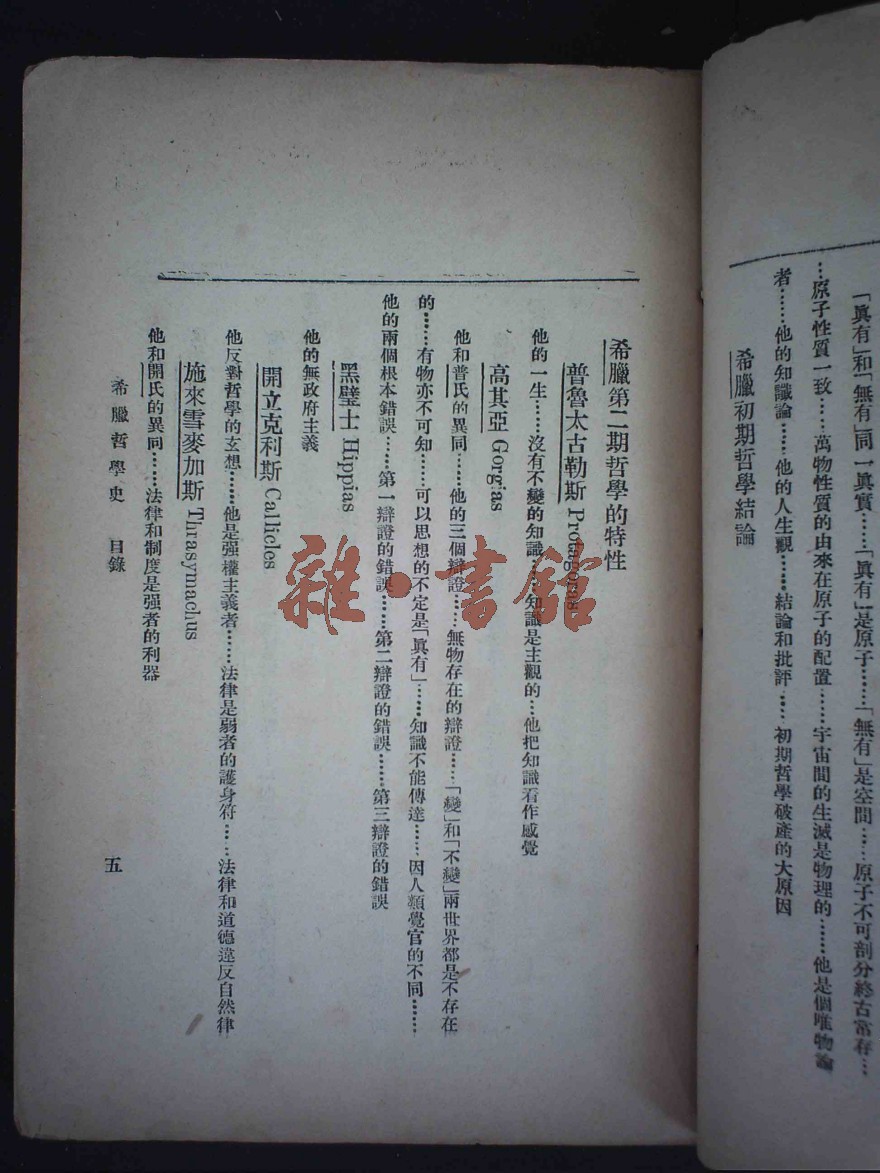 「眞有」和「無有」同一眞實……「眞有」是原子……「無有」是空間……原子不可剖分終古常存…
…原子性質一致……萬物性質的由來在原子的配置……宇宙間的生滅是物理的……他是個唯物論
者……他的知識論……他的人生觀……結論和批評……初期哲學破產的大原因
希臘初期哲學結論
希臘第二期哲學的特性
普魯太古勒斯 Protagoras
他的一生……沒有不變的知識……知識是主觀的…他把知識看作感覺
高其亞 Gorgias
他和普氏的異同……他的三個辯證……無物存在的辯證……「變」和「不變」兩世界都是不存在
的……有物亦不可知……可以思想的不定是「眞有」……知識不能傳達……因人類覺官的不同……
他的兩個根本錯誤……第一辯證的錯誤……第二辯證的錯誤……第三辯證的錯誤
黑璧士 Hippias
他的無政府主義
開立克利斯 Callicles
他反對哲學的玄想……他是强權主義者……法律是弱者的護身符……法律和道德違反自然律
施來雪麥加斯 Thrasymachus
他和開氏的異同……法律和制度是强者的利器
希臘哲學史 目錄
五
雜·書館